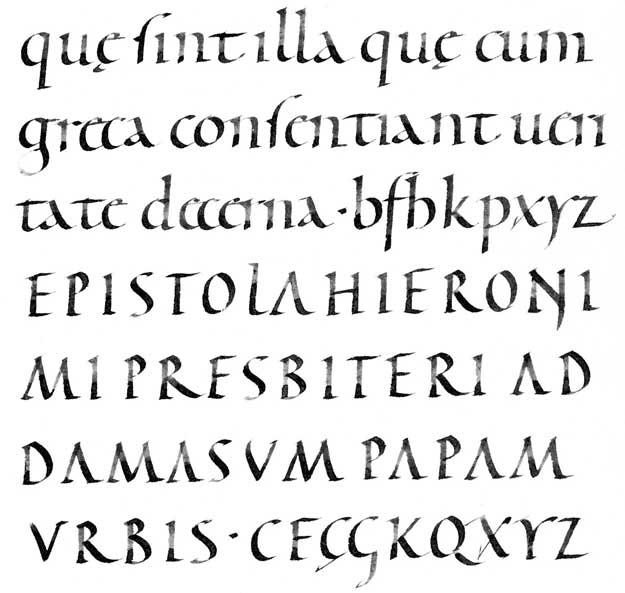 quę ſint illa quę cum
greca conſentiant ueri
tate decerna·bfhkpxyz
EPISTOLA HIERONI
MI PRESBITERI AD
DAMASVM PAPAM
VRBIS·CFGGKQXYZ